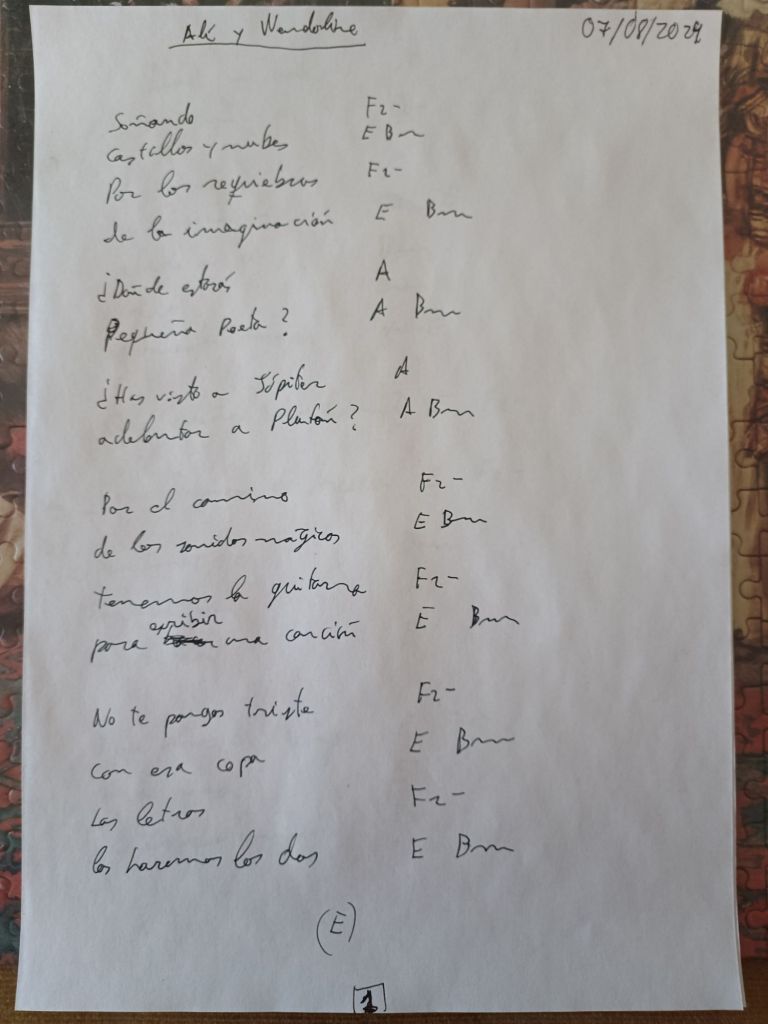 Alé y Wendoline 07/08/2024
Soñando F2-
Castillos y nubes E Bm
Por los requiebros F2-
de la imaginación E Bm
¿Dónde estarás A
Pequeña Poeta? A Bm
¿Has visto a Júpiter A
adelantar a Plutón? A Bm
Por el camino F2-
de los sonidos mágicos E Bm
tenemos la guitarra F2-
para escribir una canción E Bm
No te pongas triste F2-
con esa copa E Bm
Las letras F2-
las haremos los dos E Bm
(E)
1